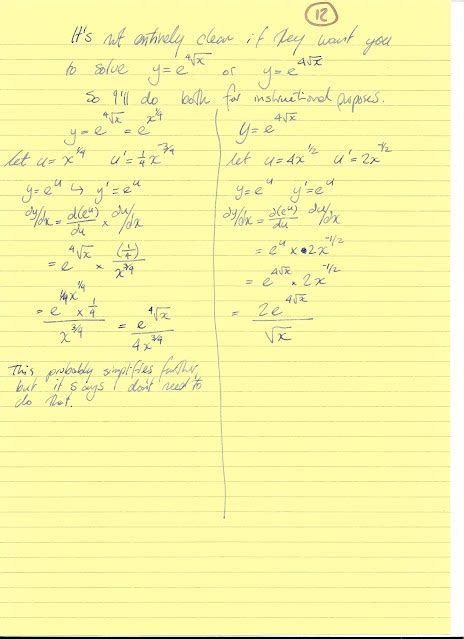 12
It's not entirely clear if they want you
to solve y = e^∜x or y = e^4√x
So I'll do both for instructional purposes.
y = e^∜x = e^x^1/4
let u = x^1/4 u' = 1/4 x^-3/4
y = e^u ↳ y' = e^u
dy/dx = d(e^u)/du × du/dx
= e^∜x × (1/4)/x^3/4
= e^x^1/4 × 1/4 / x^3/4 = e^∜x / 4x^3/4
This probably simplifies further,
but it says I don't need to
do that.
y = e^4√x
let u = 4x^1/2 u' = 2x^-1/2
y = e^u y' = e^u
dy/dx = d(e^u)/du du/dx
= e^u × 2x^-1/2
= e^4√x × 2x^-1/2
= 2e^4√x / √x